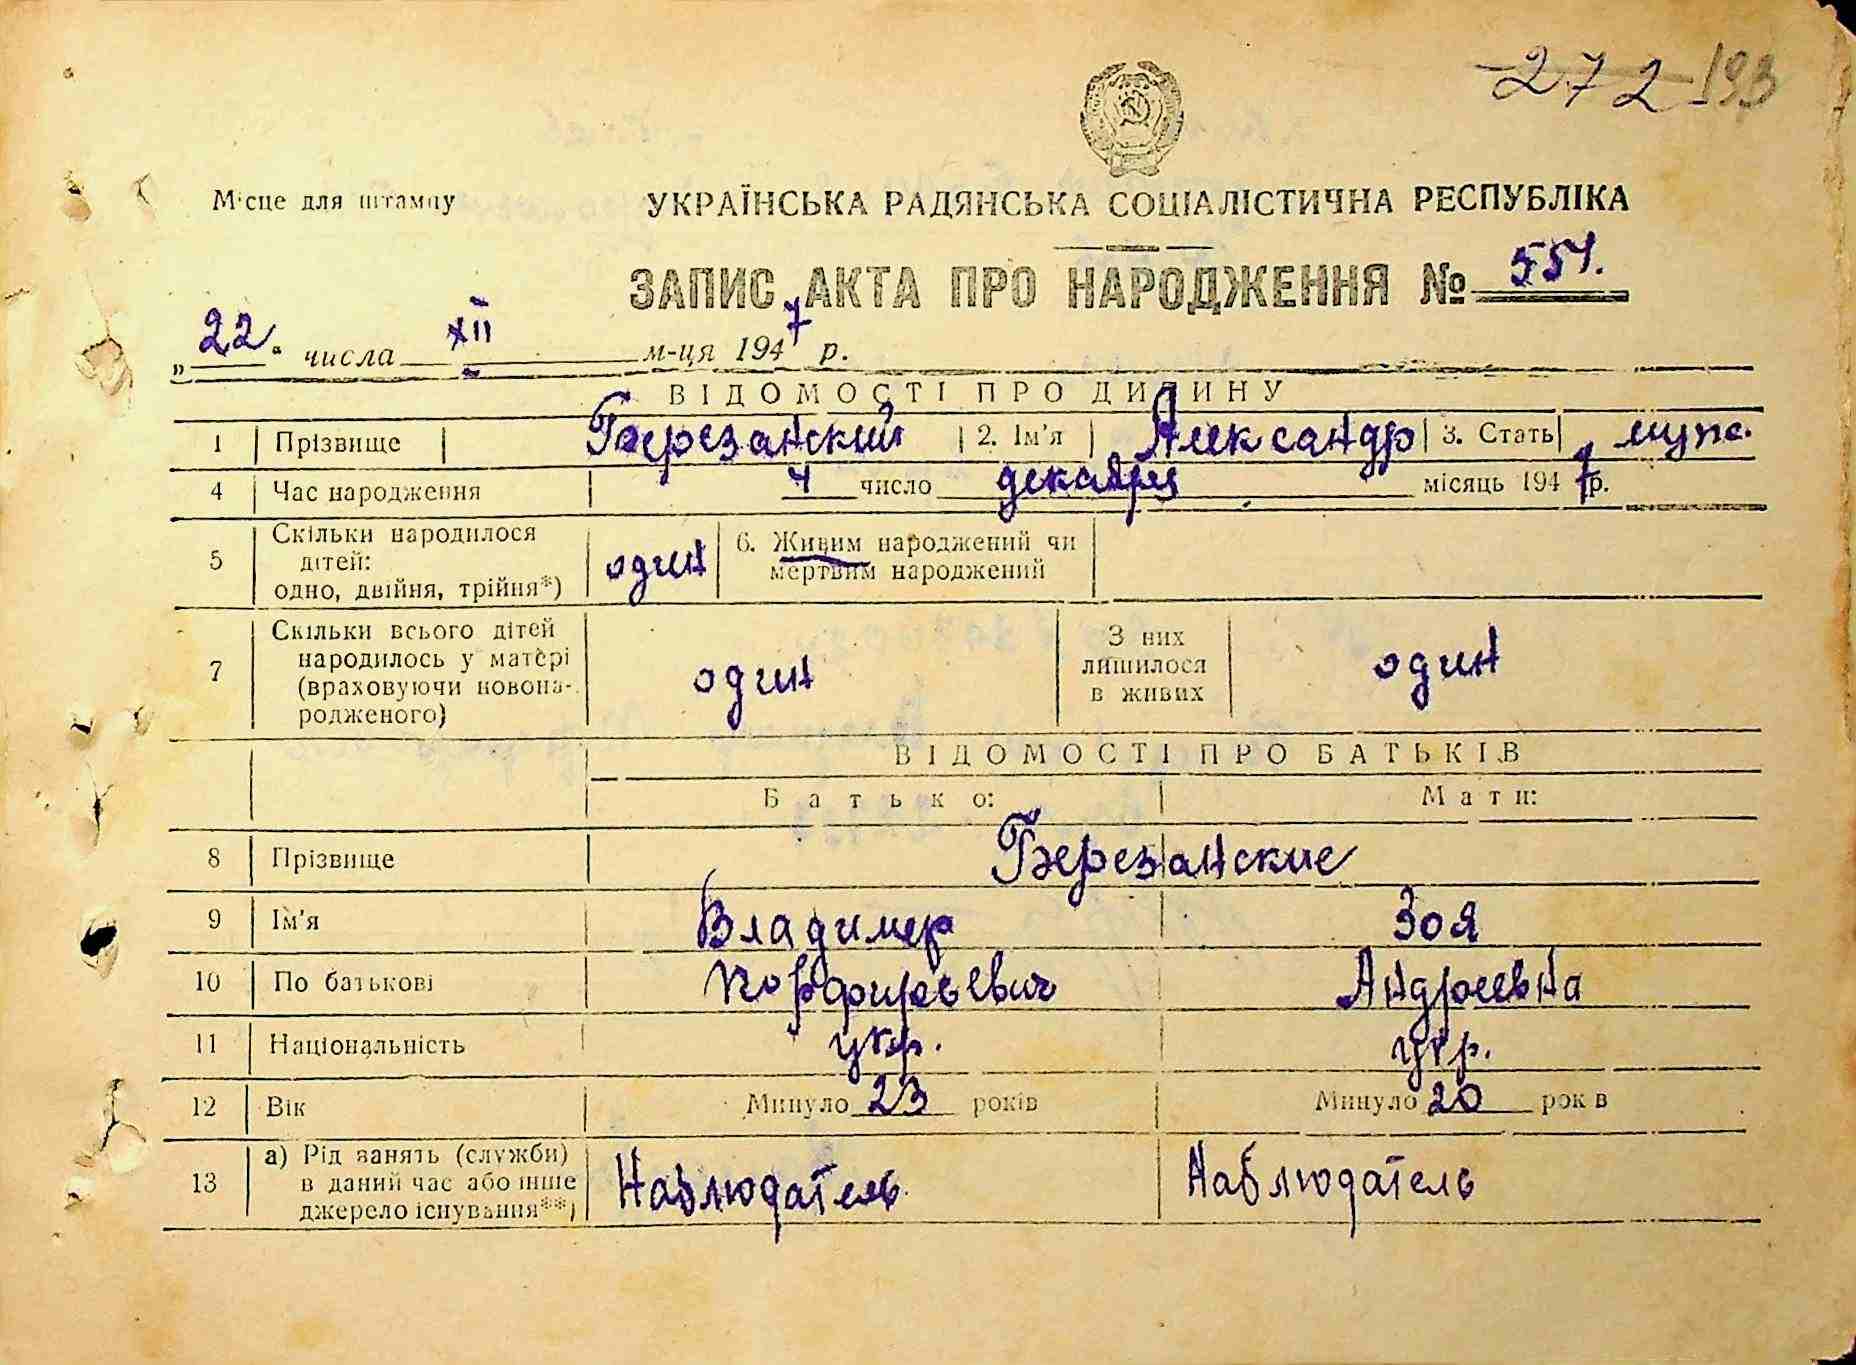 272 193
Місце для штампу
УКРАЇНСЬКА РАДЯНСЬКА СОЦІАЛІСТИЧНА РЕСПУБЛІКА
ЗАПИС АКТА ПРО НАРОДЖЕННЯ № 551.
„22“ числа XII м-ця 1947 р.
ВІДОМОСТІ ПРО ДИТИНУ
1 Прізвище Березанский 2. Ім'я Александр 3. Стать муж.
4 Час народження 4 число декабря місяць 1947 р.
5 Скільки народилося дітей: одно, двійня, трійня*) один 6. Живим народжений чи мертвим народжений
7 Скільки всього дітей народилось у матері (враховуючи новонародженого) один З них лишилося в живих один
ВІДОМОСТІ ПРО БАТЬКІВ
Батько: Мати:
8 Прізвище Березанские
9 Ім'я Владимер Зоя
10 По батькові Порфирьевич Андреевна
11 Національність укр. укр.
12 Вік Минуло 23 років Минуло 20 років
13 а) Рід занять (служби) в даний час або інше джерело існування**) Наблюдатель Наблюдатель